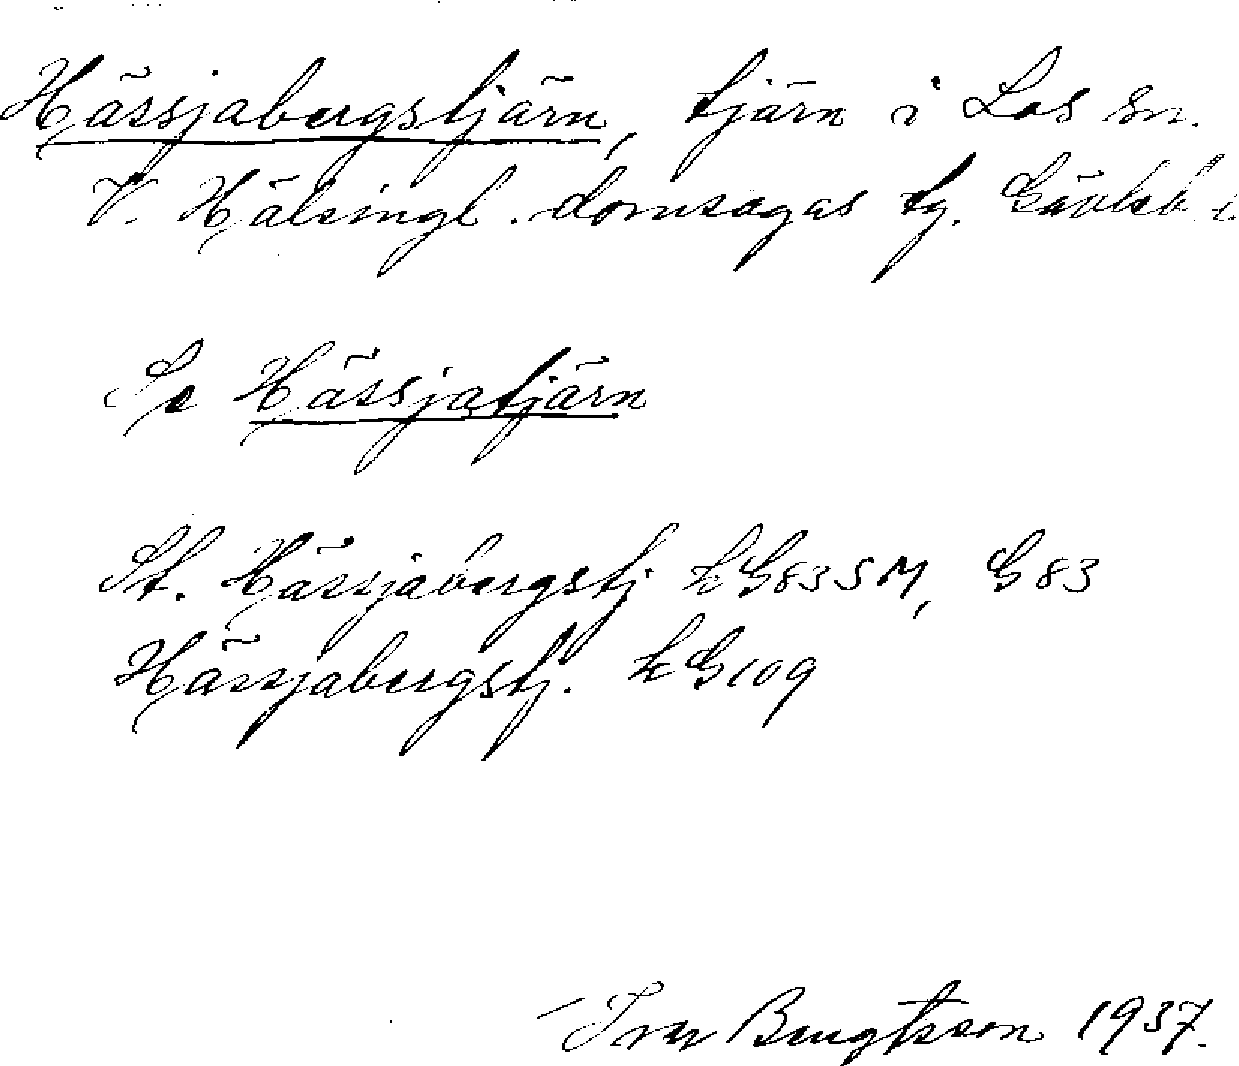 Hässjabergstjärn, tjärn i Los sn.
V. Hälsingl. domsagas tg. Gävleb. l.
Se Hässjatjärn
St. Hässjabergstj kG83SM, G83
Hässjabergstj. kG109
Ivar Bengtsson 1937.